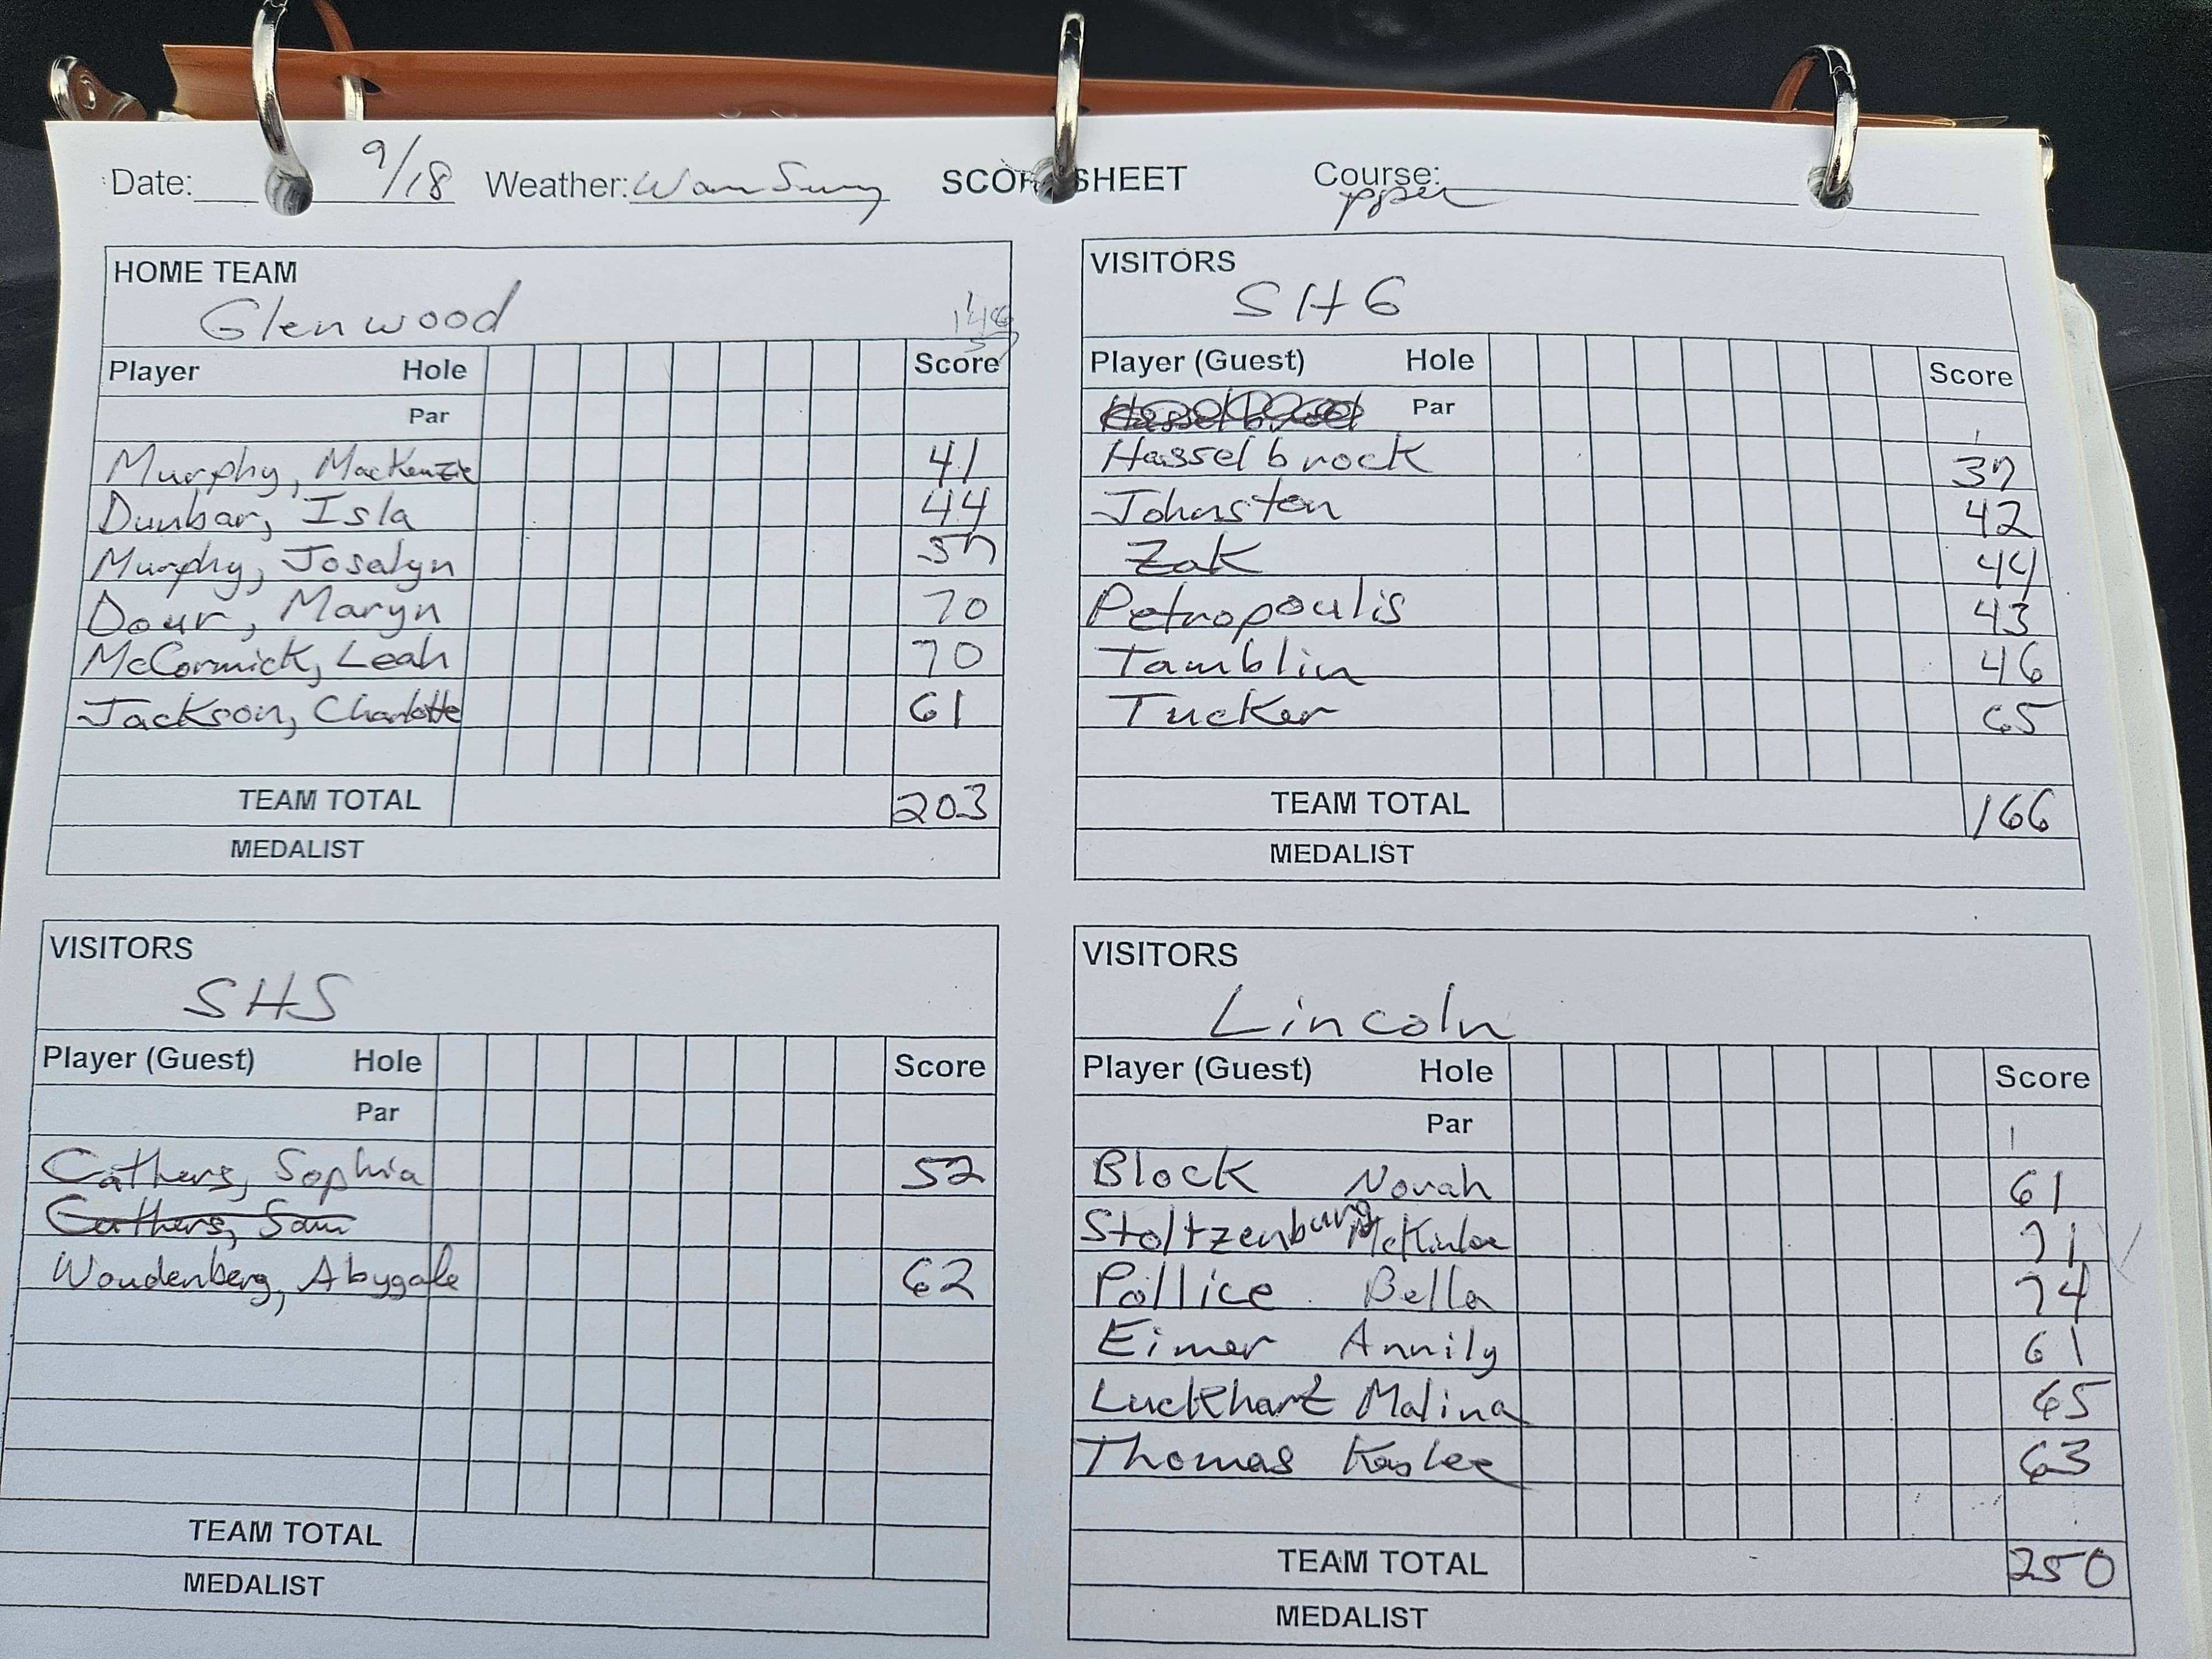 Date: 9/18 Weather: Warm Sunny SCORESHEET Course: Upper
HOME TEAM
Glenwood
146
57
Player Hole Score
Par
Murphy, MacKenzie 41
Dunbar, Isla 44
Murphy, Josalyn 57
Dour, Maryn 70
McCormick, Leah 70
Jackson, Charlotte 61
TEAM TOTAL 203
MEDALIST
VISITORS
SHG
Player (Guest) Hole Score
Hasselbrock Par
Hasselbrock 37
Johnston 42
Zak 44
Petropoulis 43
Tamblin 46
Tucker 65
TEAM TOTAL 166
MEDALIST
VISITORS
SHS
Player (Guest) Hole Score
Par
Cathers, Sophia 52
Cathers, Sam
Woudenberg, Abygale 62
TEAM TOTAL
MEDALIST
VISITORS
Lincoln
Player (Guest) Hole Score
Par
Block Norah 61
Stoltzenburg McKinlee 71
Pollice Bella 74
Eimer Annily 61
Luckhart Malina 65
Thomas Kaslee 63
TEAM TOTAL 250
MEDALIST